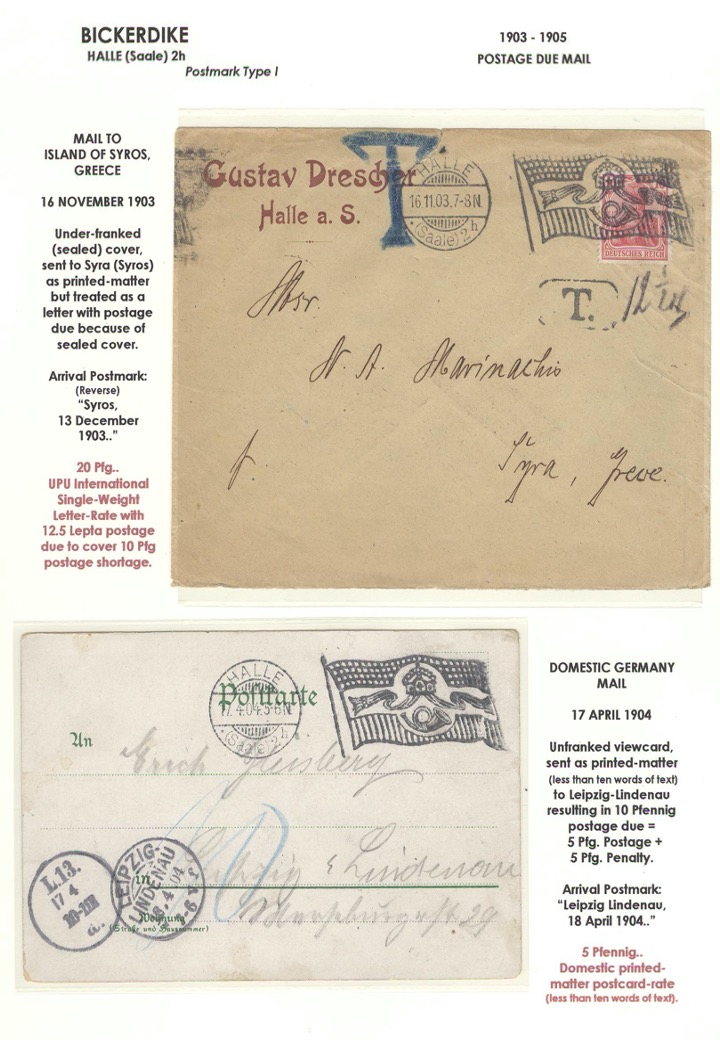 BICKERDIKE
HALLE (Saale) 2h
Postmark Type I
1903 - 1905
POSTAGE DUE MAIL
MAIL TO
ISLAND OF SYROS,
GREECE
16 NOVEMBER 1903
Under-franked
(sealed) cover,
sent to Syra (Syros)
as printed-matter
but treated as a
letter with postage
due because of
sealed cover.
Arrival Postmark:
(Reverse)
"Syros,
13 December
1903.."
20 Pfg..
UPU International
Single-Weight
Letter-Rate with
12.5 Lepta postage
due to cover 10 Pfg
postage shortage.
Gustav Drescher
Halle a. S.
T
HALLE
16.11.03.7-8N.
(Saale) 2h
DEUTSCHES REICH
T.
12½
Msr.
N. A. Marinachio
Syra,
Postkarte
HALLE
17.4.04.5-6N.
(Saale) 2h
An
Erich
in
Lindenau
Wohnung
(Straße und Hausnummer)
Merseburgstr 29
L.13.
17 4
LEIPZIG-
LINDENAU
18.4.04
10
DOMESTIC GERMANY
MAIL
17 APRIL 1904
Unfranked viewcard,
sent as printed-matter
(less than ten words of text)
to Leipzig-Lindenau
resulting in 10 Pfennig
postage due =
5 Pfg. Postage +
5 Pfg. Penalty.
Arrival Postmark:
"Leipzig Lindenau,
18 April 1904.."
5 Pfennig..
Domestic printed-
matter postcard-rate
(less than ten words of text).